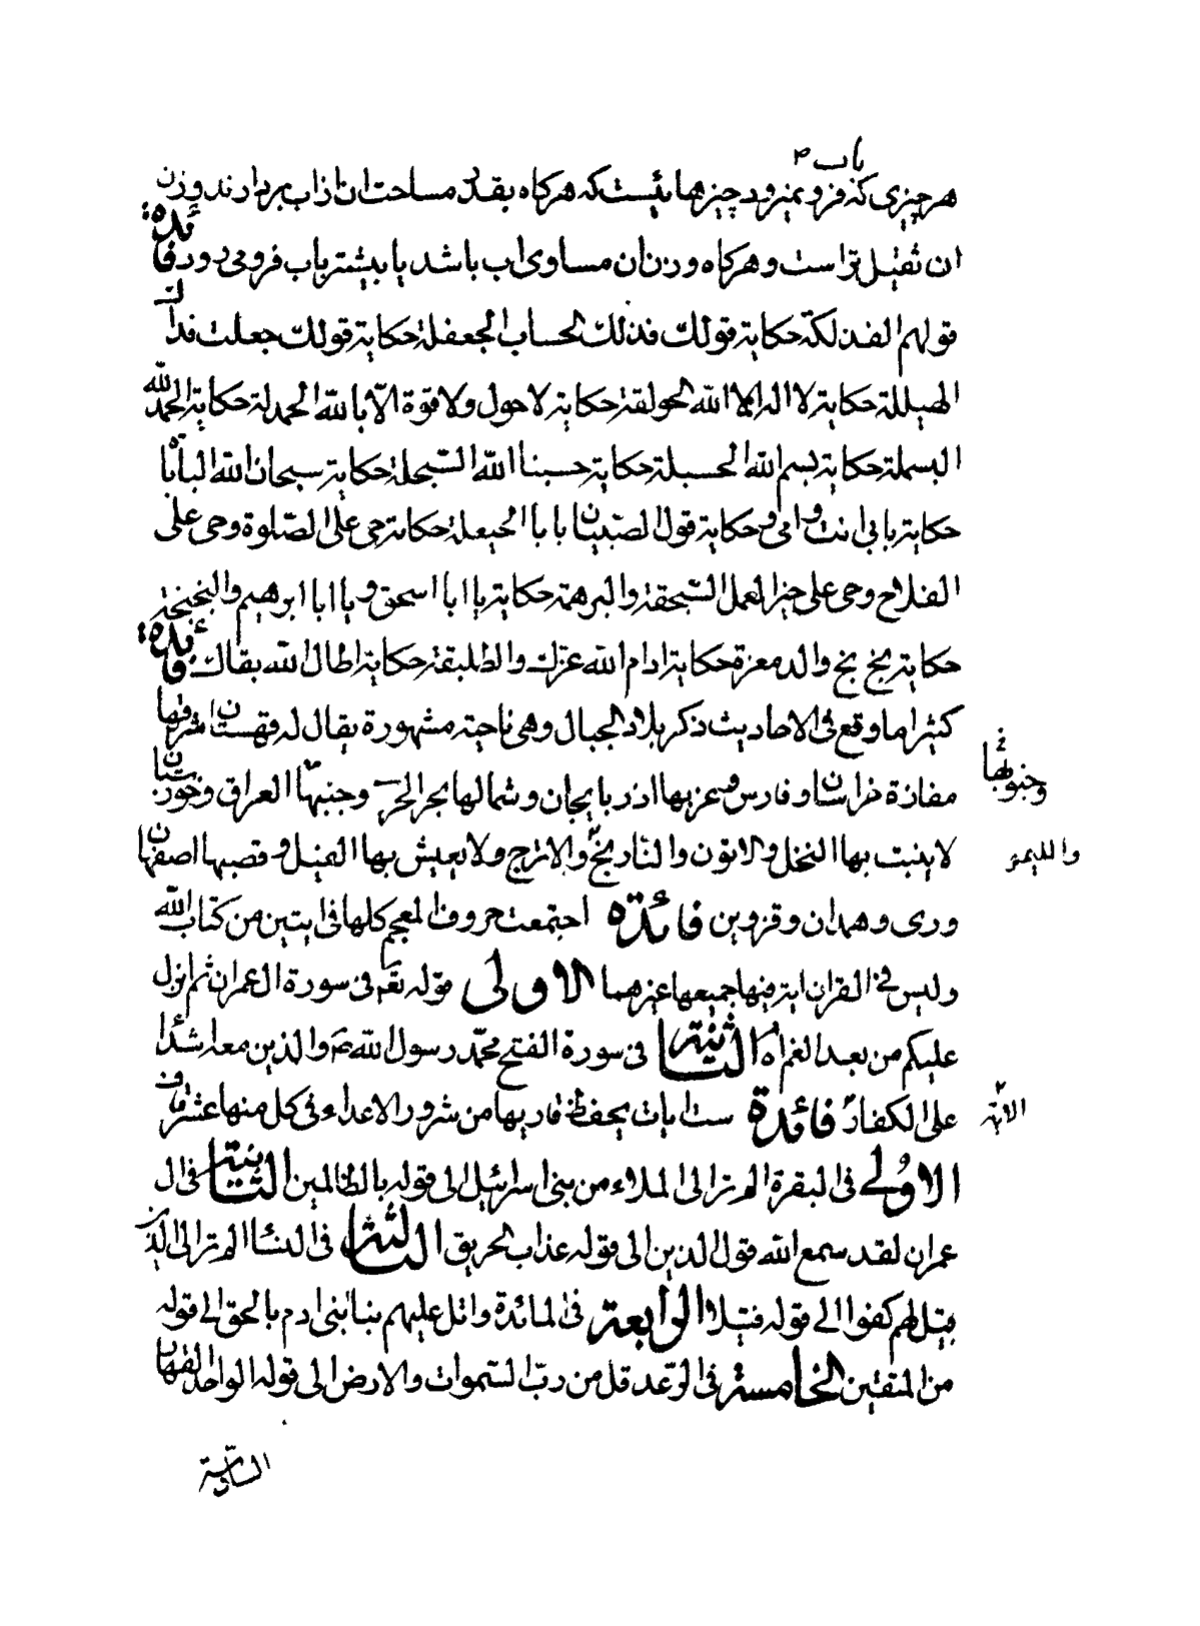 باب ۳
هر چیزی که فرو نمیرود چیزهایئست که هرکاه بقدر مساحت ان از اب بردارند وزن
ان ثقیل تر است و هرکاه وزن ان مساوی اب باشد یا بیشتر باب فرو می رود فائده:
قولهم الفذلكة حكاية قولك فذلك الحساب الجعفلة حكاية قولك جعلت فداك
الهيللة حكاية لا اله الا الله الحولقة حكاية لا حول ولا قوة الّا بالله الحمدلة حكاية الحمد لله
البسملة حكاية بسم الله الحسبلة حكاية حسبنا الله السّبحلة حكاية سبحان الله البابأة
حكاية بابى انت وامى وحكاية قول الصّبيان بابا الحيعلة حكاية حى على الصّلوة وحى على
الفلاح وحى على خير العمل السّبحقة والبرهمة حكاية يا ابا اسحق ويا ابا ابرهيم والبخبخة
حكاية بخ بخ والدمعزة حكاية ادام الله عزك والطلبقة حكاية اطال الله بقاك فائده:
كثيرا ما وقع فى الاحاديث ذكر بلاد الجبال وهى ناحية مشهورة يقال له قهستان شرقها
مفازة خراسان وفارس وغربها اذربايجان وشمالها بحر الخزر وجنبها العراق وخوزستان
وجنوبها خ
لا ينبت بها النخل والزيتون والنارنج والاترج ولا يعيش بها الفيل وقصبها اصفهان
والليمو
ورى وهمدان وقزوين فائدة اجتمعت حروف المعجم كلها فى ايتين من كتاب الله
وليس فى القران اية فيها جميعها غيرهما الاولى قوله تعم فى سورة ال عمران ثم انزل
عليكم من بعد الغم الثّانية فى سورة الفتح محمّد رسول الله والذين معه اشدّا
على الكفار فائدة ست ايات يحفظ قاريها من شرور الاعداء وفى كل منها عشر قاف
الاية
الاولى فى البقرة الم تر الى الملاء من بنى اسرئيل الى قوله بالظالمين الثّانية فى ال
عمران لقد سمع الله قول الذين الى قوله عذاب الحريق الثالثة فى النسا الم تر الى الذين
قيل لهم كفوا الى قوله فتيلا الرابعة فى المائدة واتل عليهم نبا ابنى ادم بالحق الى قوله
من المتقين الخامسة فى الرّعد قل من ربّ السّموات والارض الى قوله الواحد القهار
السّادسة